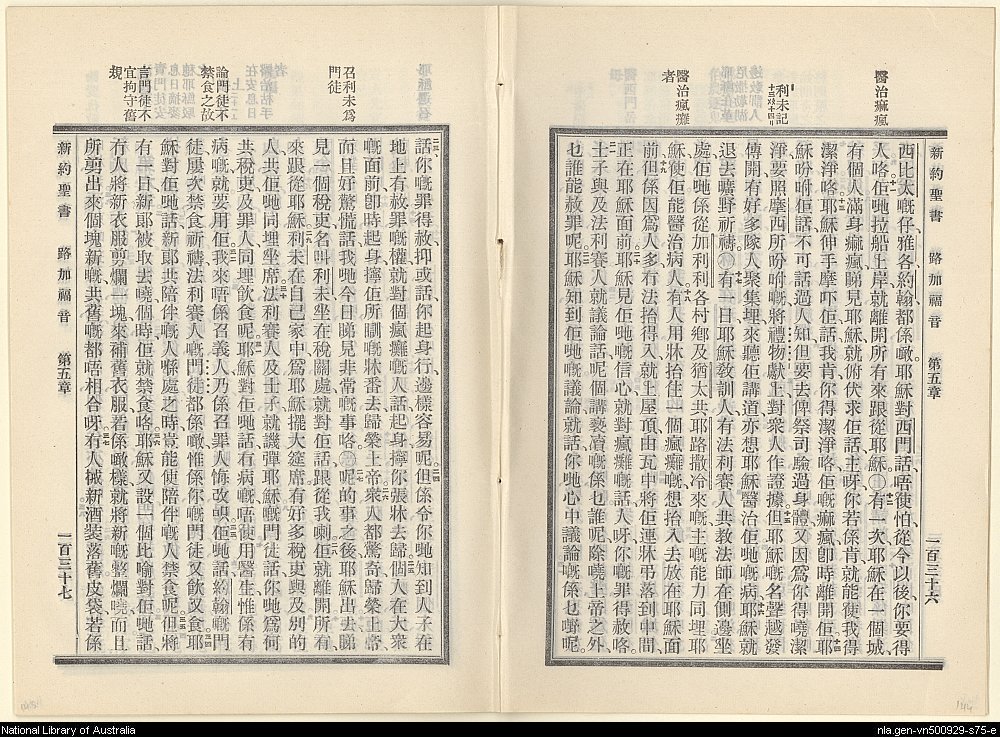 新約聖書　路加福音　第五章　一百三十六
醫治瘋瘋
利未記
十三至十四
醫治瘋癱
者
西比太嘅仔雅各約翰都係噉耶穌對西門話唔使怕從今以後你要得
人咯十一佢哋拉船上岸就離開所有來跟從耶穌〇十二有一次耶穌在一個城
有個人滿身痲瘋睇見耶穌就俯伏求佢話主呀你若係肯就能使我得
潔淨咯十三耶穌伸手摩吓佢話我肯你得潔淨咯佢嘅痲瘋卽時離開佢十四耶
穌吩咐佢話不可話過人知但要去俾祭司驗過身體又因爲你得曉潔
淨要照摩西所吩咐嘅將禮物獻上對衆人作證據十五但耶穌嘅名聲越發
傳開有好多隊人聚集埋來聽佢講道亦想耶穌醫治佢哋嘅病十六耶穌就
退去曠野祈禱〇十七有一日耶穌敎訓人有法利賽人共敎法師在側邊坐
處佢哋係從加利利各村鄉及猶太共耶路撒冷來嘅主嘅能力同埋耶
穌使佢能醫治病人十八有人用牀抬住一個瘋癱嘅想抬入去放在耶穌面
前十九但係因爲人多冇法抬得入就上屋頂由瓦中將佢連牀弔落到中間
正在耶穌面前二十耶穌見佢哋嘅信心就對瘋癱嘅話人呀你嘅罪得赦咯
二一士子與及法利賽人就議論話呢個講褻瀆嘅係乜誰呢除嘵上帝之外
乜誰能赦罪呢二二耶穌知到佢哋嘅議論就話你哋心中議論嘅係乜嘢呢
二三話你嘅罪得赦抑或話你起身行邊樣容易呢二四但係令你哋知到人子在
地上有赦罪嘅權就對個瘋癱嘅人話起身擰你張牀去歸二五個人在大衆
嘅面前卽時起身擰佢所瞓嘅牀番去歸榮上帝二六衆人都驚奇歸榮上帝
而且好驚慌話我哋今日睇見非常嘅事咯〇二七呢的事之後耶穌出去睇
見一個稅吏名叫利未坐在稅關處就對佢話跟從我喇二八佢就離開所有
來跟從耶穌二九利未在自己家中爲耶穌擺大筵席有好多稅吏與及別的
人共佢哋同埋坐席三十法利賽人及士子就譏彈耶穌嘅門徒話你哋爲何
共稅吏及罪人同埋飮食呢三一耶穌對佢哋話冇病嘅唔使用醫生惟係有
病嘅就要用佢三二我來唔係召義人乃係召罪人悔改呮三三佢哋話約翰嘅門
徒屢次禁食祈禱法利賽人嘅門徒都係噉惟係你嘅門徒又飮又食三四耶
穌對佢哋話新郞共陪伴嘅人喺處之時豈能使陪伴嘅人禁食呢三五但將
有一日新郞被取去嘵個時佢就禁食咯三六耶穌又設一個比喻對佢哋話
冇人將新衣服剪爛一塊來補舊衣服若係噉樣就將新嘅整爛嘵而且
所剪出來個塊新嘅共舊嘅都唔相合呀三七冇人摵新酒裝落舊皮袋若係
召利未爲
門徒
論門徒不
禁食之故
言門徒不
宜拘守舊
規
新約聖書　路加福音　第五章　一百三十七
National Library of Australia
nla.gen-vn500929-s75-e